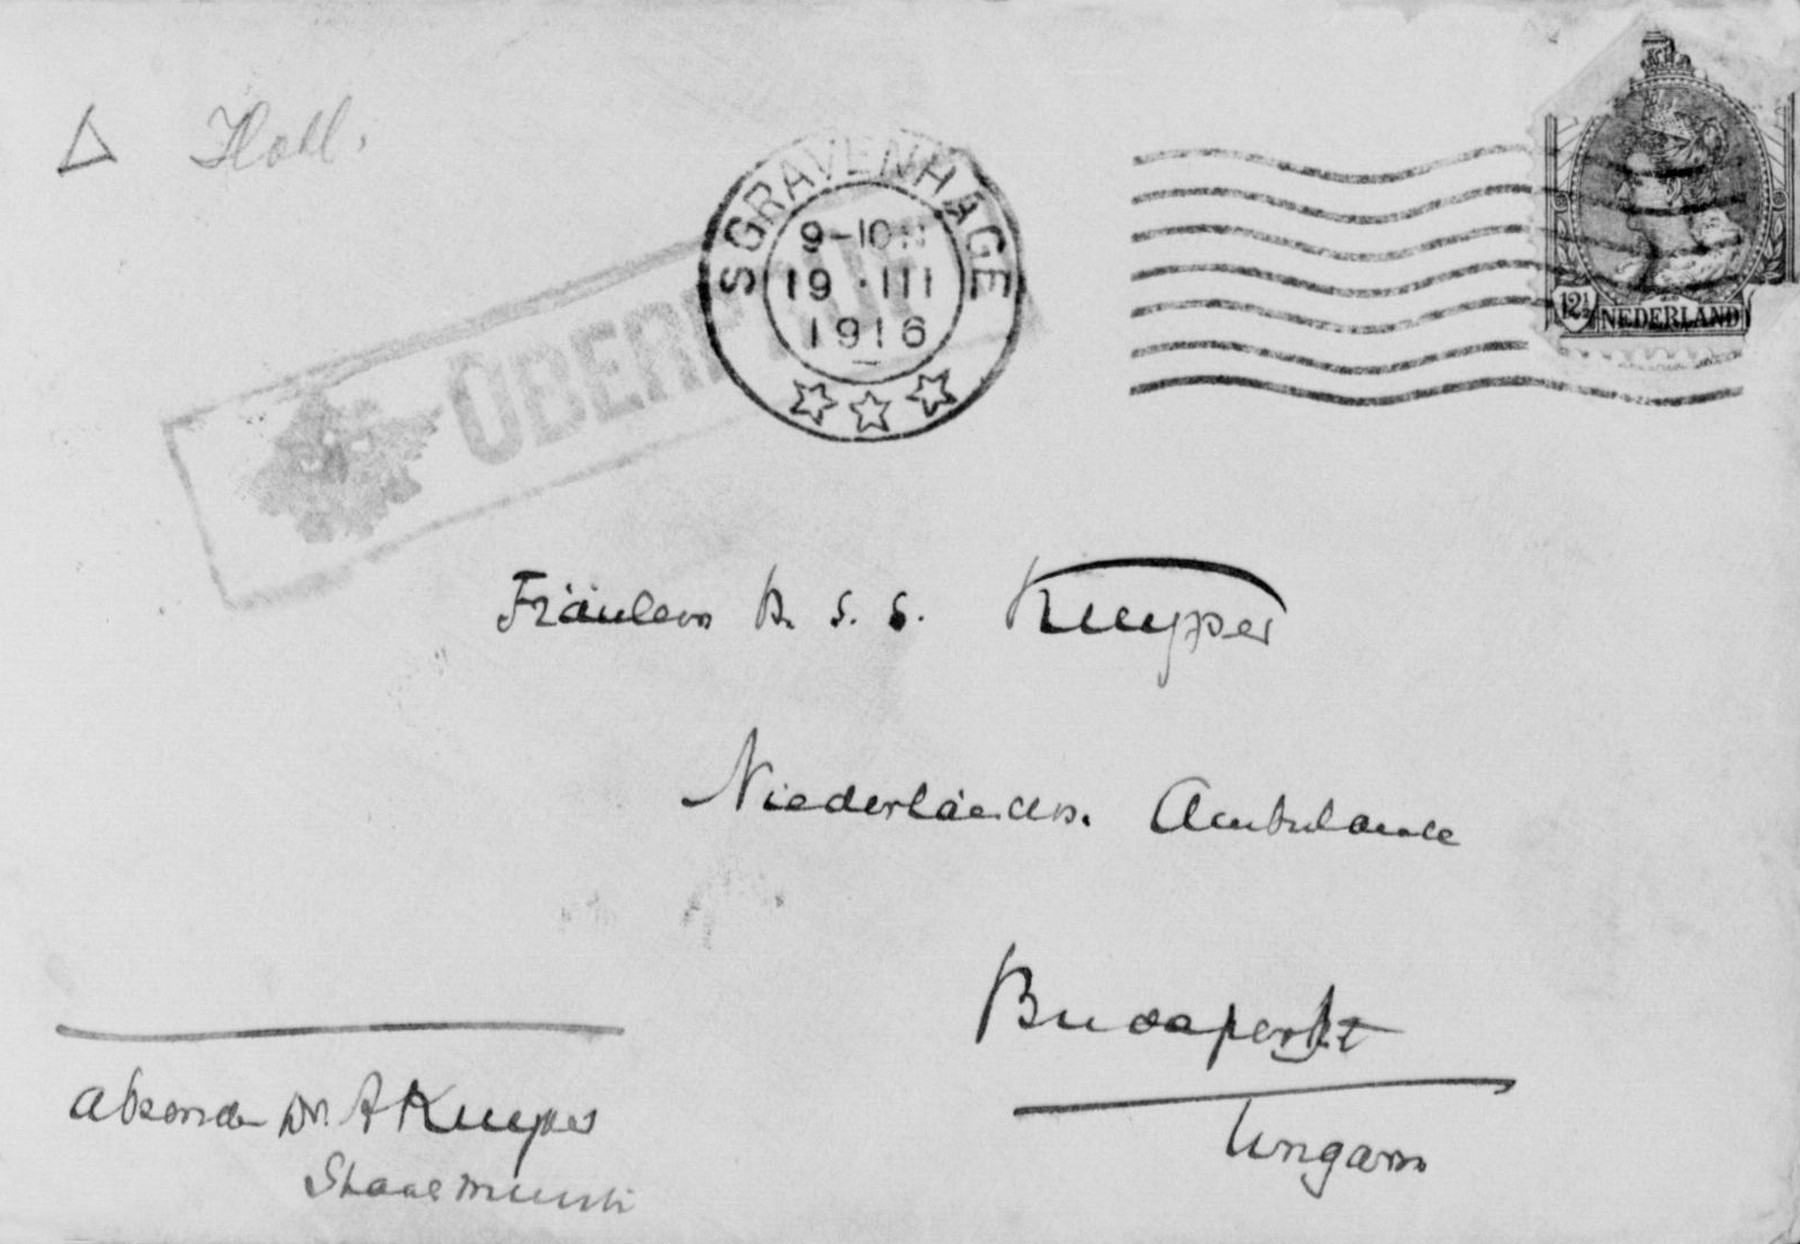 Holl.
SGRAVENHAGE
9-10 N
19 · III
1916
ÜBERPRÜFT
12½ NEDERLAND
Fräulein H. S. S. Kuyper
Niederländs. Ambulance
Budapest
Ungarn
Absender Dr. A Kuyper